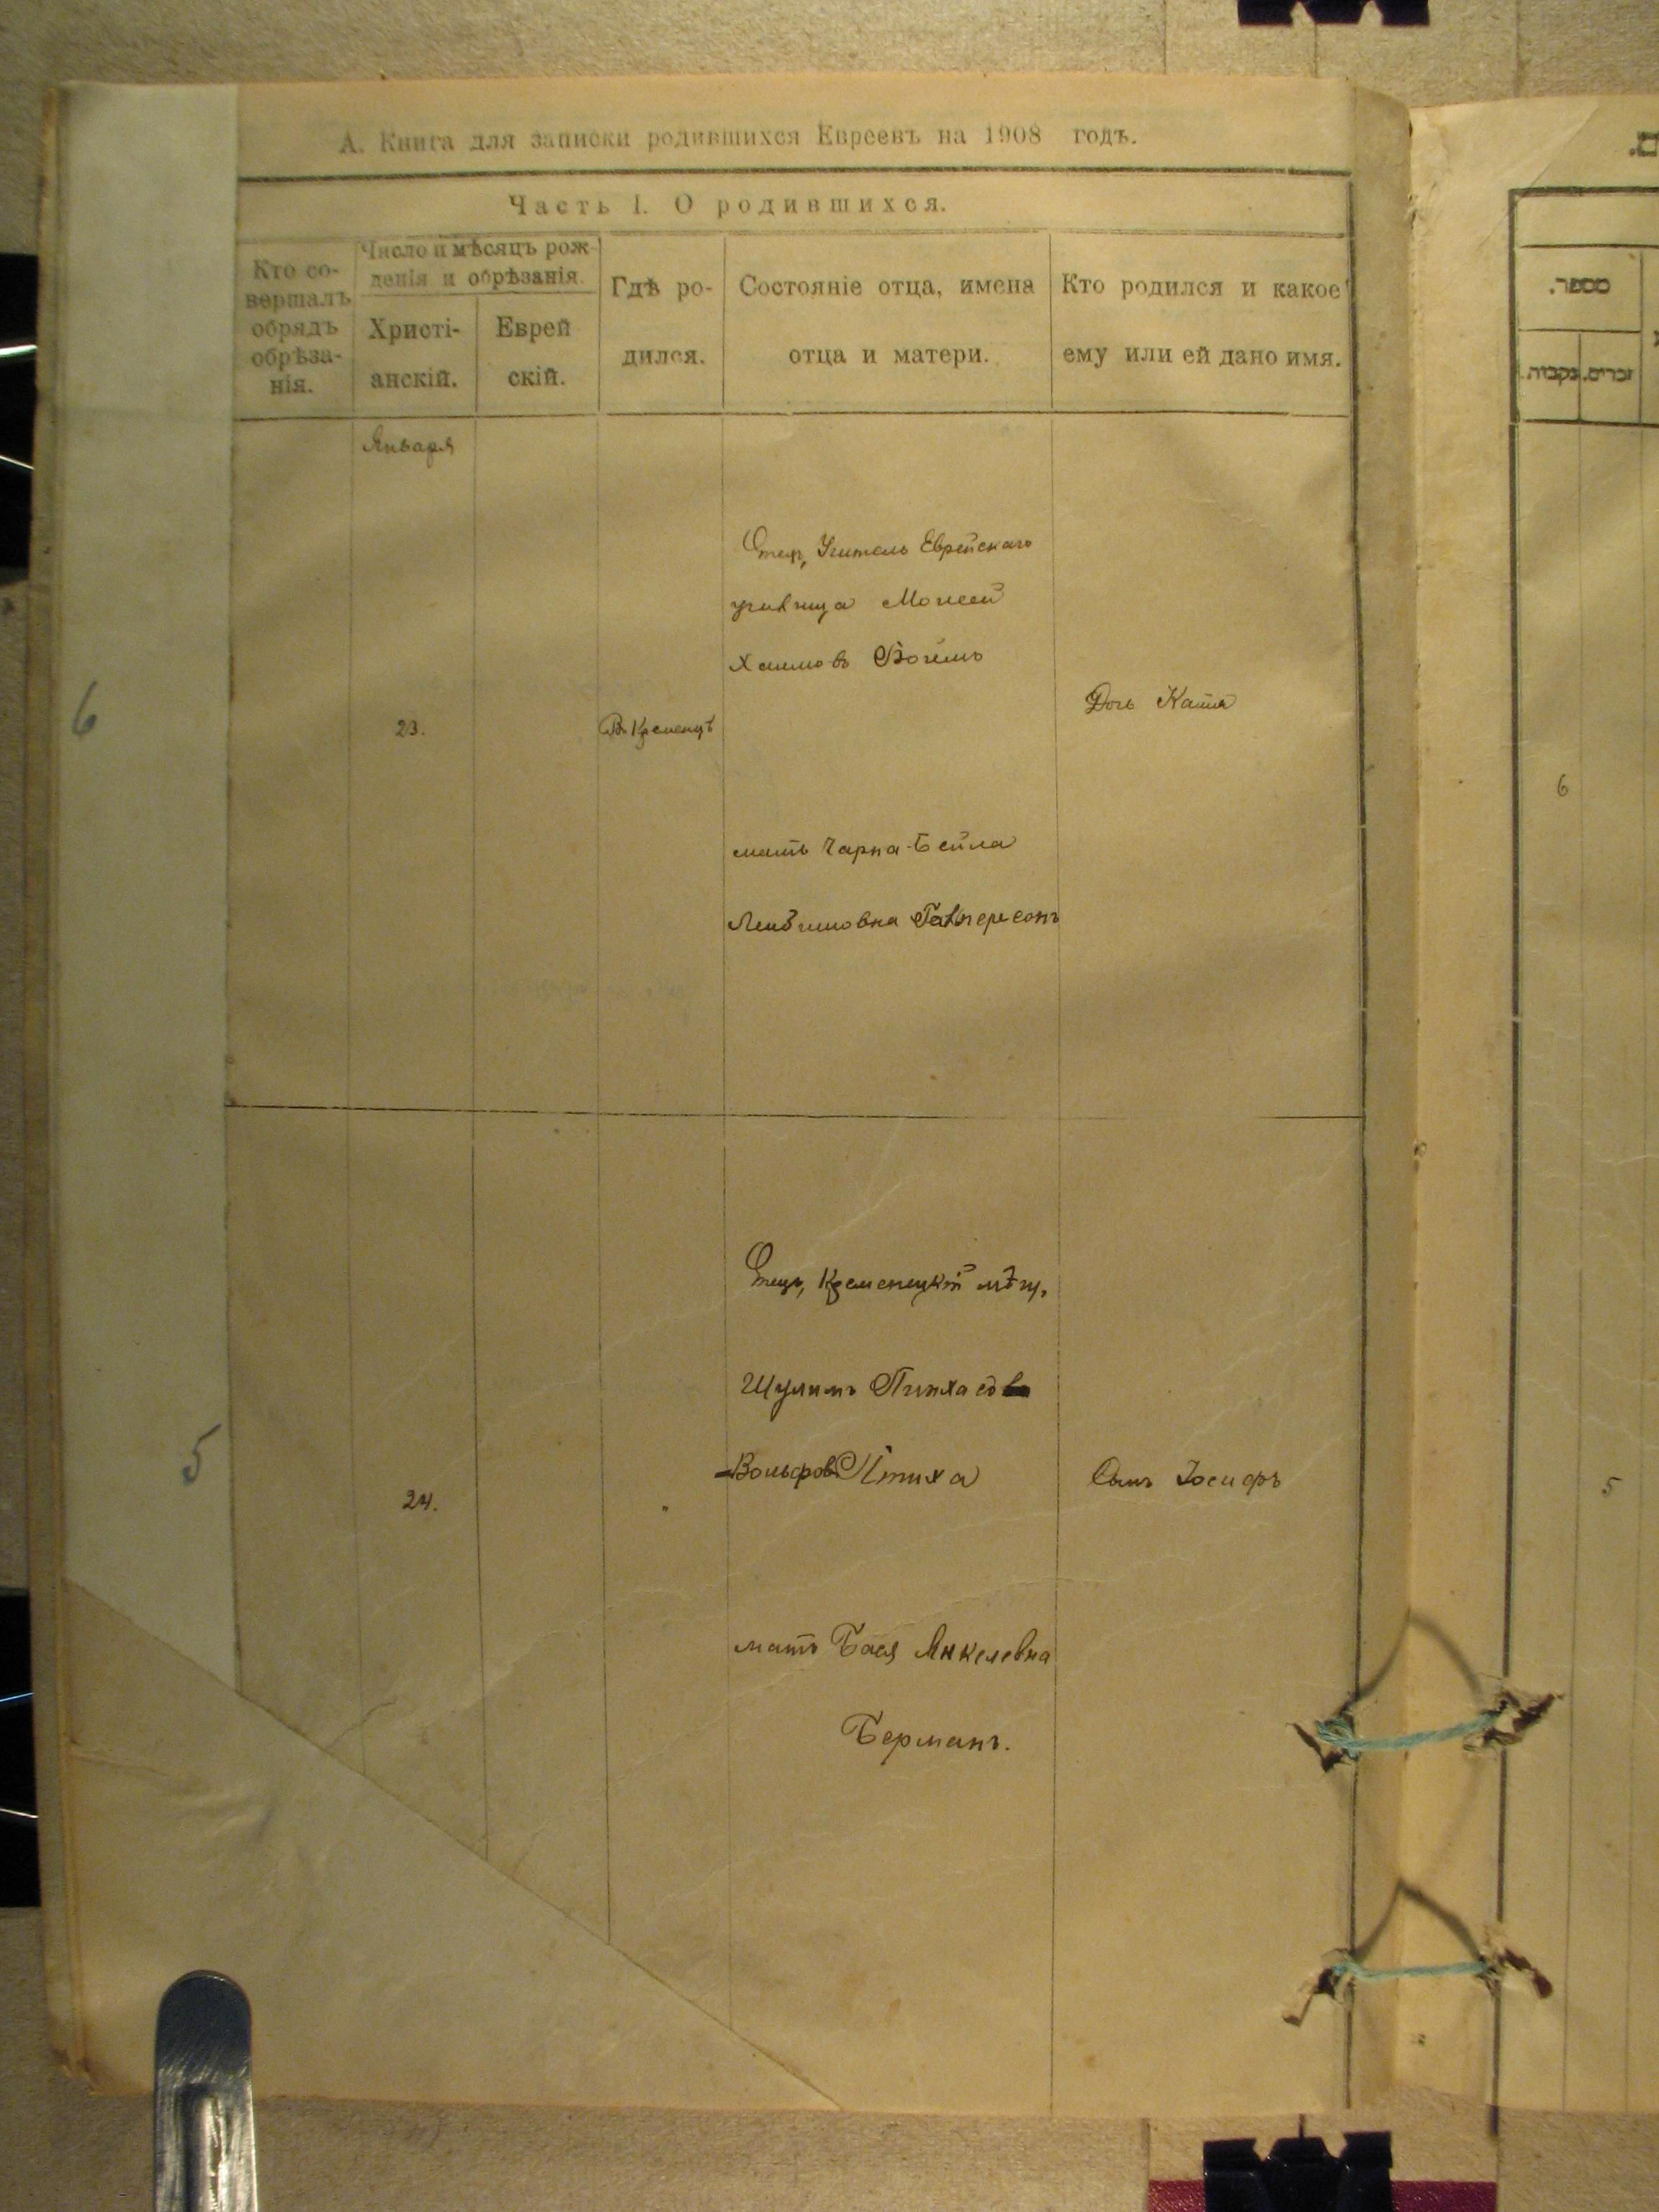 А. Книга для записки родившихся Евреевъ на 1908 годъ.
Часть I. О родившихся.
Кто со-
вершалъ
обрядъ
обрѣза-
нія.
Число и мѣсяцъ рож-
денія и обрѣзанія.
Христі-
анскій.
Еврей
скій.
Гдѣ ро-
дился.
Состояніе отца, имена
отца и матери.
Кто родился и какое
ему или ей дано имя.
Января
6
23.
Въ Кременцѣ
Отец, Учитель Еврейскаго
училища Моисей
Хаимовъ
мать Чарна-Бейла
Гальперсонъ
Дочь Катя
5
24.
"
Отецъ, Кременецкій мѣщ.
Шулимъ Пинхасов
Вольфовъ Птиха
мать Бася Янкелевна
Берманъ.
Сынъ Іосифъ
ם.
מספר.
זכרים.
נקבות.
6
5